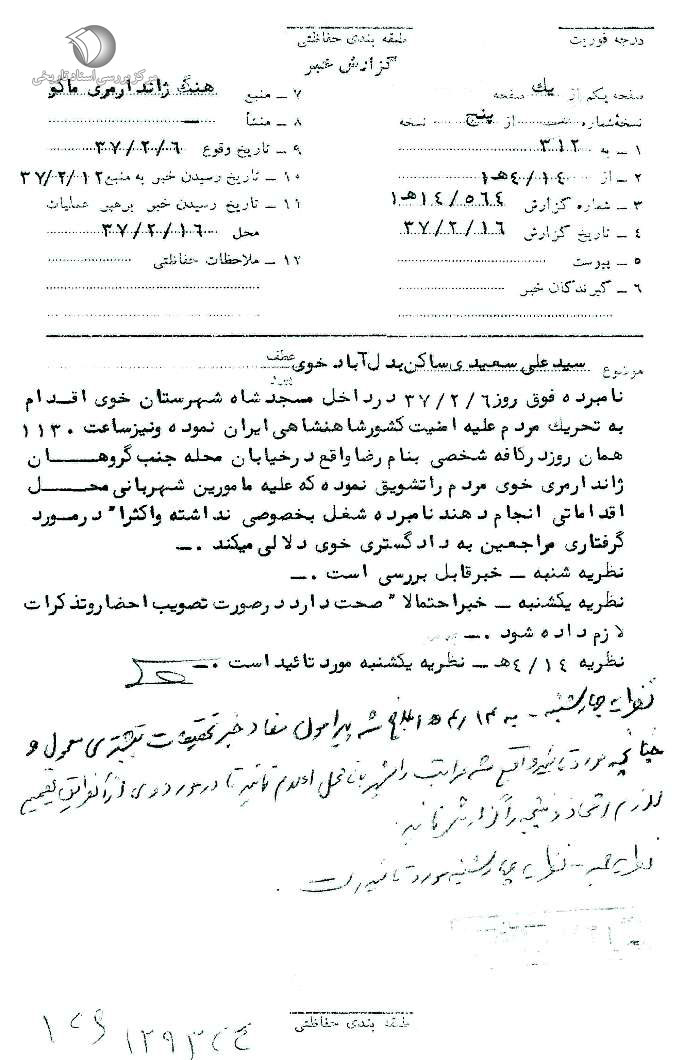 مرکز بررسی اسناد تاریخی
درجه فوریت
طبقه بندی حفاظتی
گزارش خبر
صفحه یکم از یک صفحه
نسخهٔ شماره از پنج نسخه
۱ ـ به ۳۱۲
۲ ـ از ۴/۱۴هـ۱
۳ ـ شماره گزارش ۱۴/۵۶۴هـ۱
۴ ـ تاریخ گزارش ۳۷/۲/۱۶
۵ ـ پیوست
۶ ـ گیرندگان خبر
۷ ـ منبع هنگ ژاندارمری ماکو
۸ ـ منشأ ـ
۹ ـ تاریخ وقوع ۳۷/۲/۶
۱۰ ـ تاریخ رسیدن خبر به منبع ۳۷/۲/۱۲
۱۱ ـ تاریخ رسیدن خبر برهبر عملیات
محل ۳۷/۲/۱۶
۱۲ ـ ملاحظات حفاظتی
موضوع سیدعلی سعیدی ساکن بدل‌آباد خوی عطف
نامبرده فوق روز ۳۷/۲/۶ درداخل مسجد شاه شهرستان خوی اقدام
به تحریک مردم علیه امنیت کشورشاهنشاهی ایران نموده ونیزساعت ۱۱۳۰
همان روزدرکافه شخصی بنام رضا واقع درخیابان محله جنب گروهان
ژاندارمری خوی مردم راتشویق نموده که علیه مامورین شهربانی محل
اقداماتی انجام دهند نامبرده شغل بخصوصی نداشته واکثرا" درمورد
گرفتاری مراجعین به دادگستری خوی دلالی میکند .ـ
نظریه شنبه ـ خبرقابل بررسی است .ـ
نظریه یکشنبه ـ خبراحتمالا" صحت دارد درصورت تصویب احضاروتذکرات
لازم داده شود .ـ
نظریه ۴/۱۴هـ ـ نظریه یکشنبه مورد تائید است .ـ
نظریه چهارشنبه ـ به ۴/۱۴هـ۱ ابلاغ شد پیرامون مفاد خبر تحقیقات بیشتری معمول و
چنانچه مورد تائید واقع شد مراتب را بشهربانی محل اعلام نمایند تا در مورد وی از آنطریق تصمیم
لازم اتخاذ و نتیجه را گزارش نمایند.
نظریه جمعه ـ نظریه چهارشنبه مورد تائید است .
طبقه بندی حفاظتی